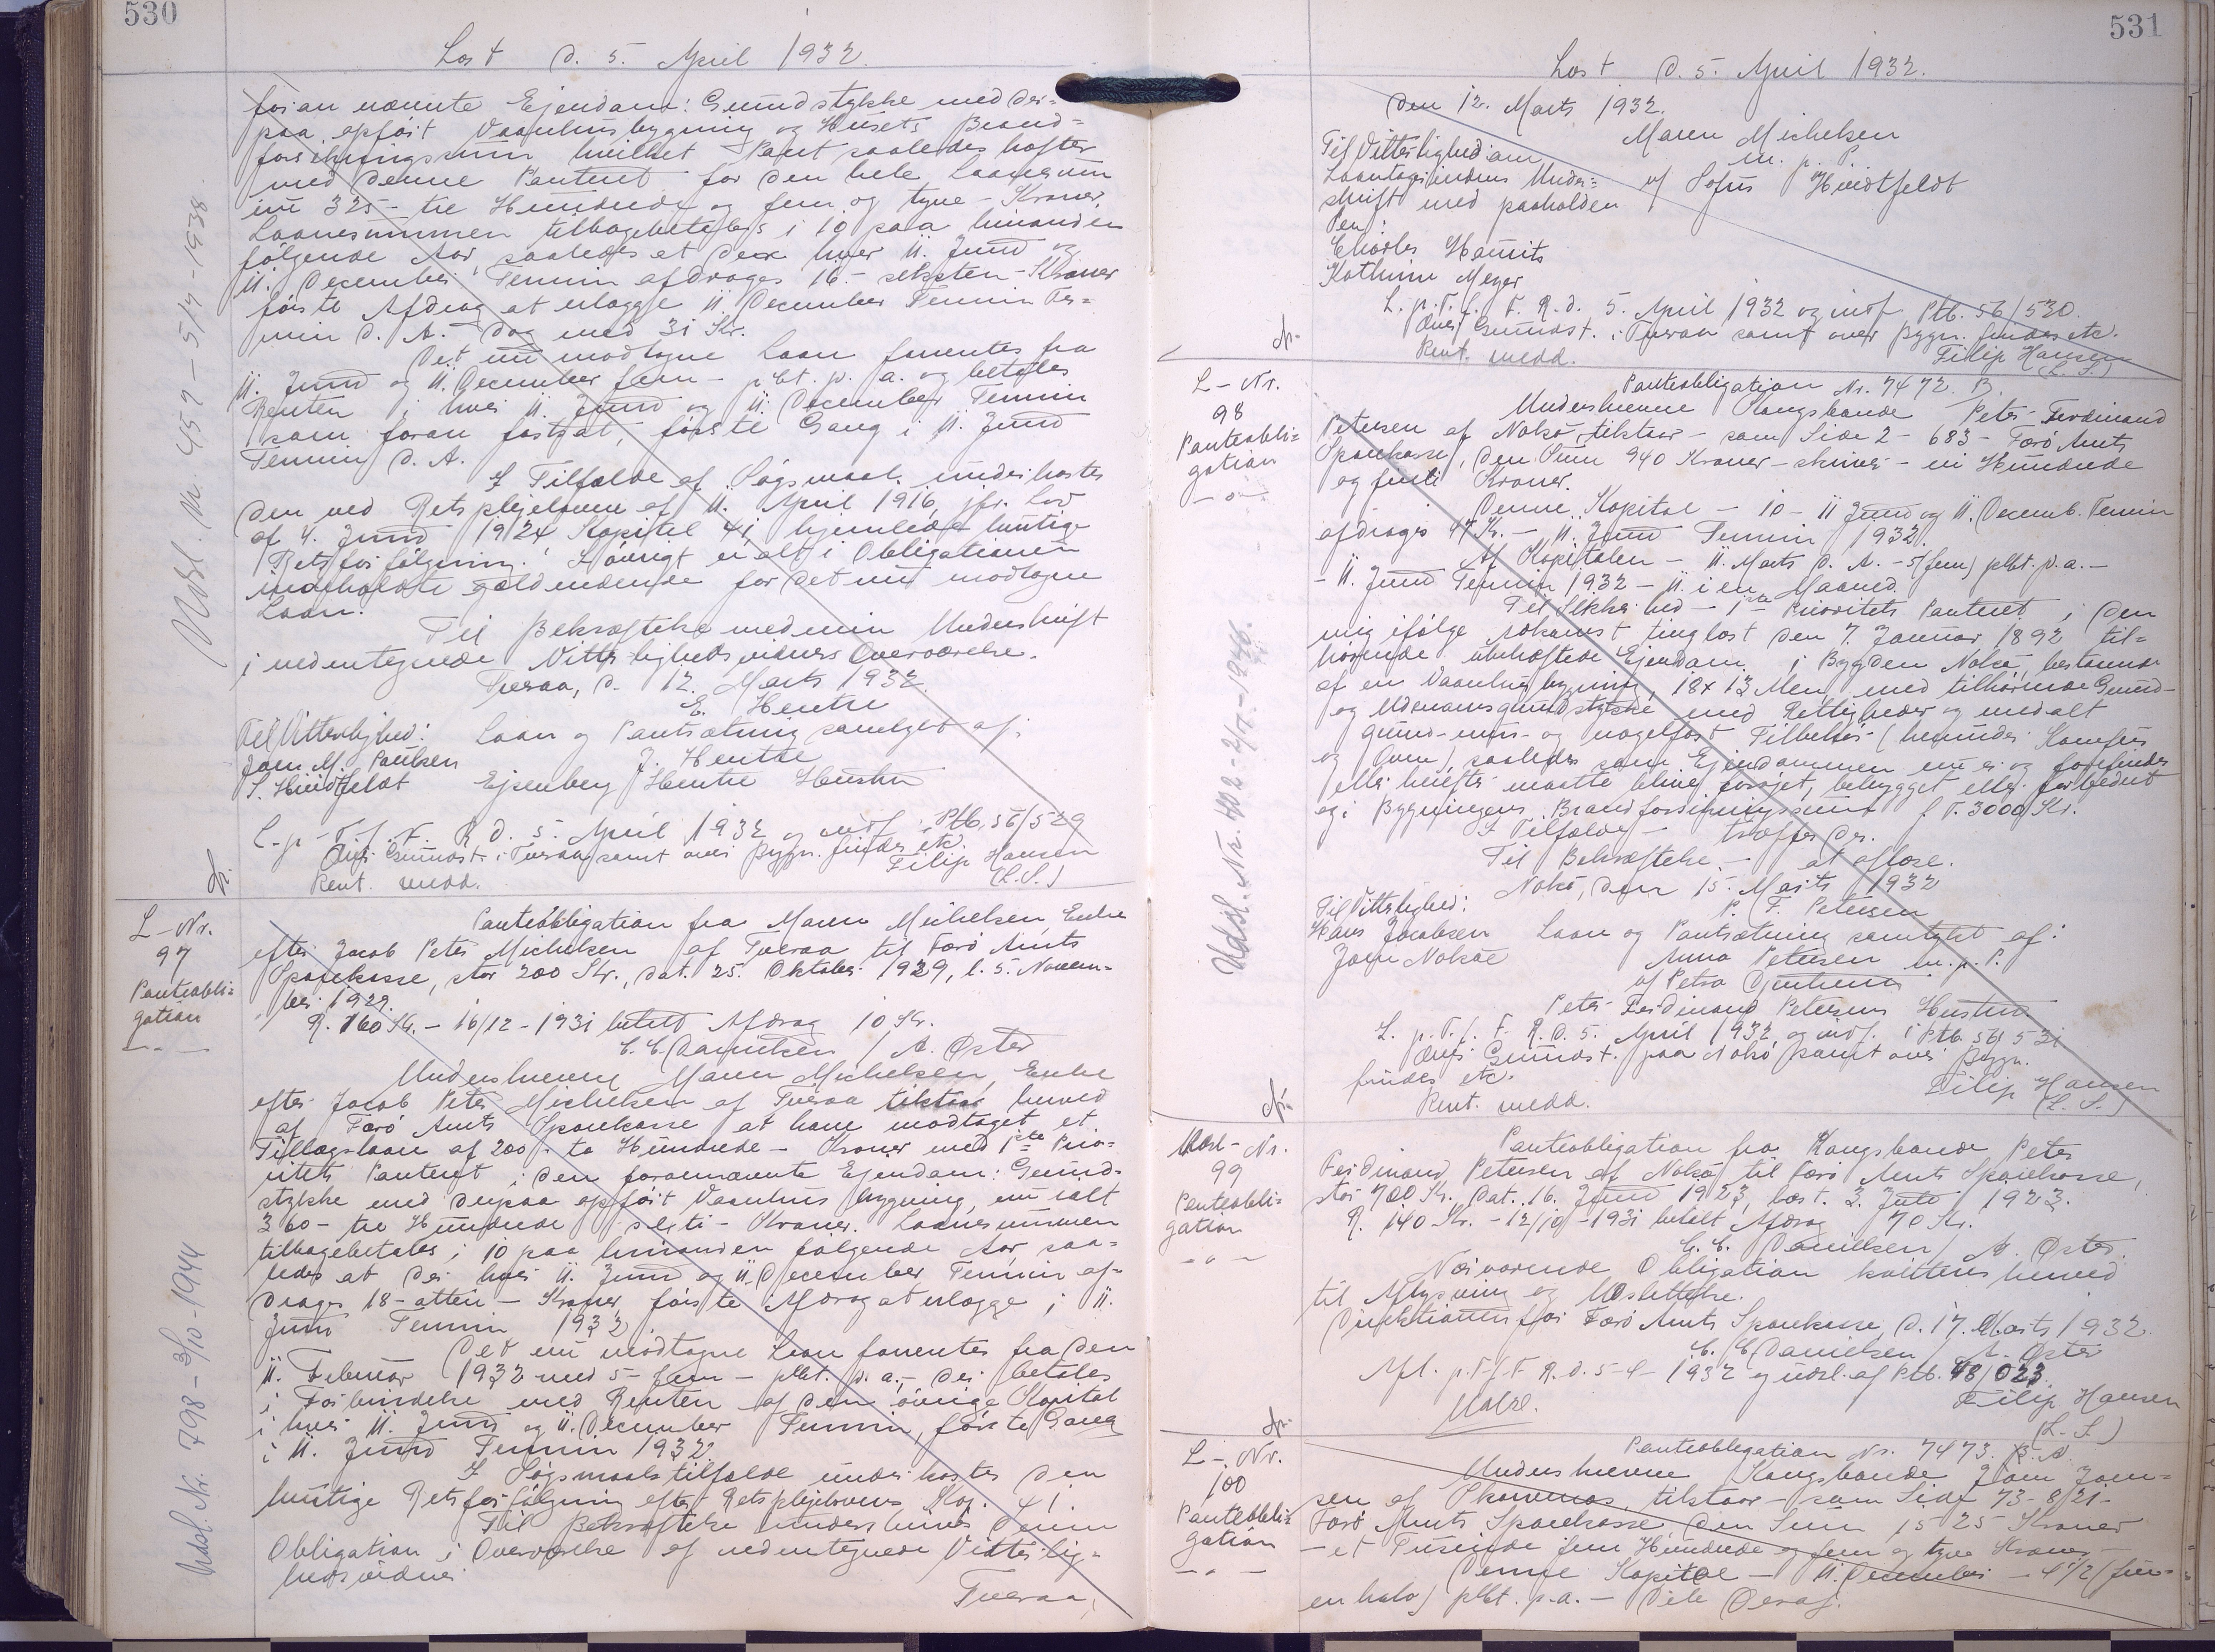 530
Læst d. 5. April 1932.
foran nævnte Ejendom: Grundstykke med der=
paa opført Vaanhusbygning og Husets Brand=
forsikringssum hvilket Pant saaledes hæfter
med denne Panteret for den hele Laanesum
nu 325 - tre Hundrede og fem og tyve - Kroner.
Laanesummen tilbagebetales i 10 paa hinanden
følgende Aar saaledes at der hver 11. Juni og
11. December Termin afdrages 16 - seksten - Kroner
første Afdrag at erlægge 11 December Termin Ter=
min d. A. - dog med 31 Kr.
Det nu modtagne Laan forrentes fra
11. Juni og 11. December fem - pCt. p. a. og betales
Renten i hver 11. Juni og 11. December Termin
som foran fastsat, første Gang i 11. Juni
Termin d. A.
I Tilfælde af Søgsmaal underkastes
den ved Retsplejeloven af 11. April 1916, jfr. Lov
af 4. Juni 1924 Kapitel 41 hjemlede hurtige
Retsforfølgning. Iøvrigt er alt i Obligationen
indeholdte gældende for det nu modtagne
Laan.
Til Bekræftelse med min Underskrift
i nedentegnede Vitterlighedsvidners Overværelse.
Tveraa, d. 12. Marts 1932.
E. Hentze
Til Vitterlighed: Laan og Pantsætning samtykt af:
Joen M. Poulsen J. Hentze
S. Huidtfeldt Ejsenberg Hentze Hustru
L. p. T. f. F. R. d. 5. April 1932 og indf. Ptb. 56/529
Anf. Grundst. i Tveraa samt over Bygn. findes etc.
Rent. medd. Filip Hansen
(L.S.)
L-Nr.
97
Panteobli=
gation
Panteobligation fra Maren Michelsen, Enke
efter Jacob Peter Michelsen af Tveraa til Færø Amts
Sparekasse, stor 200 Kr., dat. 25. Oktober 1929, l. 5. Novem=
ber 1929.
R. 160 Kr. - 16/12 - 1931 betalt Afdrag 10 Kr.
C. C. Danielsen / A. Øster
Underskrevne Maren Michelsen, Enke
efter Jacob Peter Michelsen af Tveraa tilstaar herved
af Færø Amts Sparekasse at have modtaget et
Tillægslaan af 200 - to Hundrede - Kroner med 1ste Prio=
ritets Panteret i den forannævnte Ejendom: Grund=
stykke med derpaa opført Vaanhusbygning, nu ialt
360 - tre Hundrede seksti - Kroner. Laanesummen
tilbagebetales i 10 paa hinanden følgende Aar, saa=
ledes at der hver 11. Juni og 11. December Termin af=
drages 18 - atten - Kroner, første Afdrag at erlægge i 11.
Juni Termin 1932.
Det nu modtagne Laan forrentes fra den
11. Februar 1932 med 5 - fem - pCt. p. a., der betales
i Forbindelse med Renten af den øvrige Kapital
i hver 11. Juni og 11. December Termin, første Gang
i 11. Juni Termin 1932.
I Søgsmaalstilfælde underkastes den
hurtige Retsforfølgning efter Retsplejelovens Kap. 41.
Til Bekræftelse underskrives denne
Obligation i Overværelse af nedentegnede Vitterlig=
hedsvidner.
Tveraa,
Udsl. Nr. 457 - 5/7 - 1938.
Udsl. Nr. 798 - 3/10 - 1944
531
Læst d. 5. April 1932.
den 12. Marts 1932.
Maren Michelsen
m. p. P.
af Sofus Huidtfeldt
Til Vitterlighed om
Laantagerindens Under=
skrift med paaholden
Pen:
Charles Hamits
Kathrine Meyer
L. p. T. f. F. R. d. 5. April 1932 og indf. Ptb. 56/530.
Anf. Grundst. i Tveraa samt over Bygn. findes etc.
Rent. medd. Filip Hansen
(L.S.)
L-Nr.
98
Panteobli=
gation
Panteobligation Nr. 7472. B.
Underskrevne Kongsbonde Peter Ferdinand
Petersen af Nolsø, tilstaar - som Side 2 - 683 - Færø Amts
Sparekasse, den Sum 940 Kroner - skriver - ni Hundrede
og fyrti Kroner.
Denne Kapital - 10 - 11 Juni og 11. Decemb. Termin
afdrages 47 Kr. - 11. Juni Termin 1932.
Af Kapitalen - 11. Marts d. A. - 5 (fem) pCt. p. a. -
- 11. Juni Termin 1932 - 11. i en Maaned.
Til Sikkerhed - 1ste Prioritets Panteret i den
mig ifølge Adkomst tinglæst den 7. Januar 1892 til=
hørende ubehæftede Ejendom i Bygden Nolsø, bestaaende
af en Vaanhusbygning, 18 x 13 Alen, med tilhørende Grund-
og Udenomsgrundstykke med Rettigheder og med alt
grund- mur- og nagelfast Tilbehør (herunder Komfur
og Ovn), saaledes som Ejendommen nu er og forefindes
eller herefter maatte blive forøjet, bebygget eller forbedret
og i Bygningens Brandforsikringssum f. T. 3000 Kr.
I Tilfælde - træffer der.
Til Bekræftelse - at aflæse.
Nolsø, den 15. Marts 1932
P. F. Petersen
Til Vitterlighed:
Hans Jacobsen Laan og Pantsætning samtykt af:
Joen Nolsøe Anna Petersen m. p. P.
af Petra Djurhuus
Peter Ferdinand Petersens Hustru
L. p. T. f. F. R. d. 5. April 1932 og indf. i Ptb. 56/531
Anf. Grundst. paa Nolsø samt over Bygn.
findes etc.
Rent. medd. Filip Hansen
(L. S.)
Udsl-Nr.
99
Panteobli=
gation
Panteobligation fra Kongsbonde Peter
Ferdinand Petersen af Nolsø til Færø Amts Sparekasse,
stor 700 Kr., dat. 16. Juni 1923, læst. 3. Juli 1923.
R. 140 Kr. - 12/10 - 1931 betalt Afdrag 70 Kr.
C. C. Danielsen / A. Øster
Nærværende Obligation kvitteres herved
til Aflysning og Udslettelse.
Direktionen for Færø Amts Sparekasse, d. 17. Marts 1932.
C. C. Danielsen / A. Øster
Afl. p. T. f. F. R. d. 5-4-1932 og udsl. af Ptb. 48/023.
Filip Hansen
(L.S.)
L-Nr.
100
Panteobli=
gation
Panteobligation Nr. 7473. B. A.
Underskrevne Kongsbonde Joen Joen=
sen af Skarvenes, tilstaar - som Side 73 - 8/21 -
Færø Amts Sparekasse, den Sum 1525 Kroner
- et Tusinde fem Hundrede og fem og tyve Kroner -
Denne Kapital - 11. December - 4 1/2 (fire
en halv) pCt. p. a. - Dele Deraf.
Udsl. Nr. 402 - 2/7 - 1946.